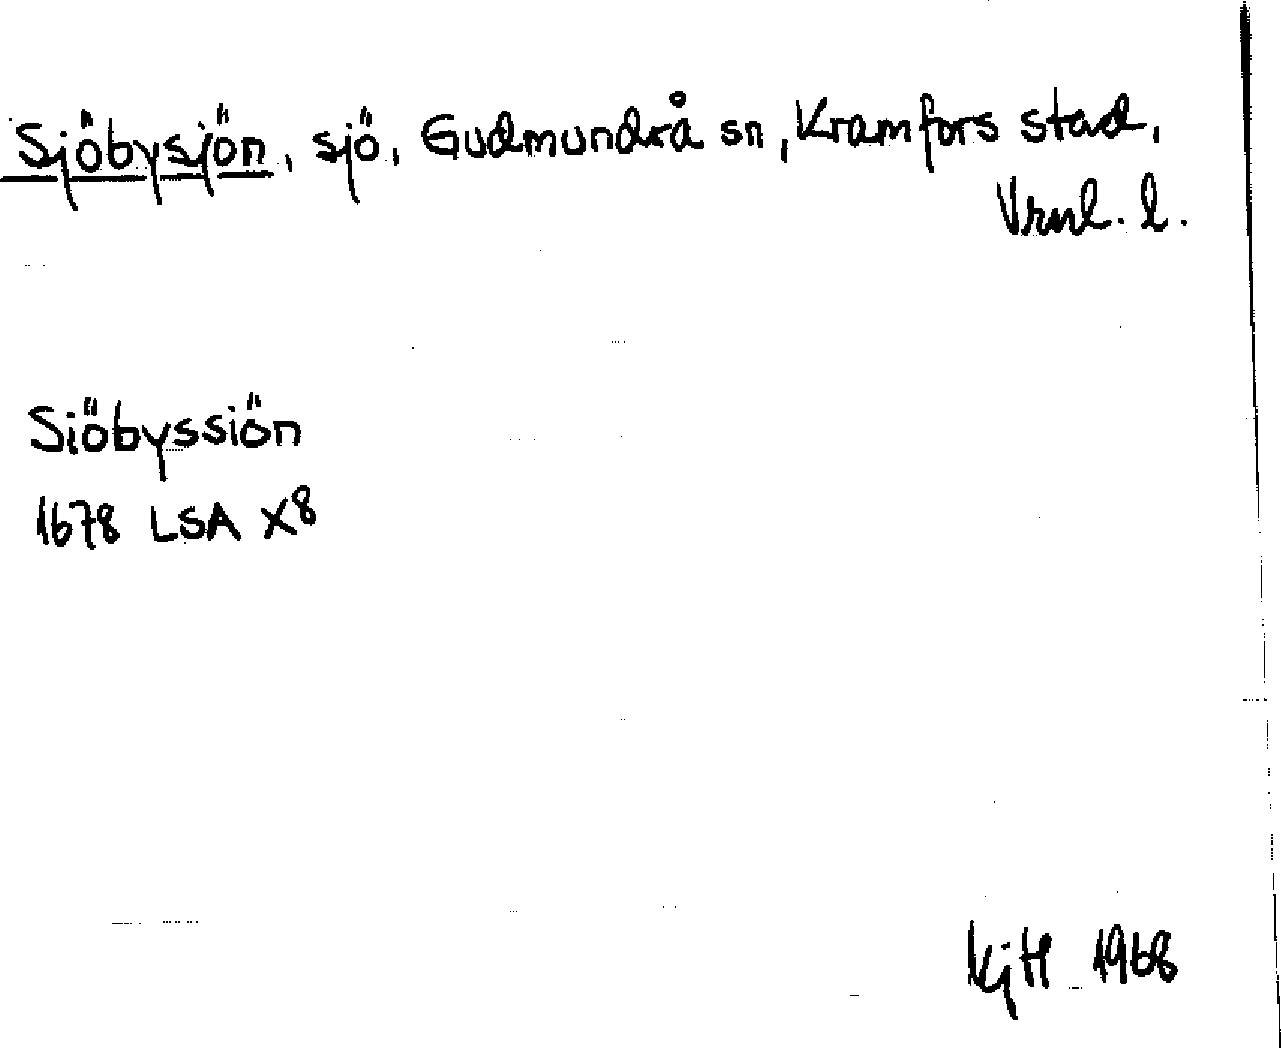 Sjöbysjön, sjö, Gudmundrå sn, Kramfors stad,
Vrnl. l.
Siöbyssiön
1678 LSA X8
KjH 1968